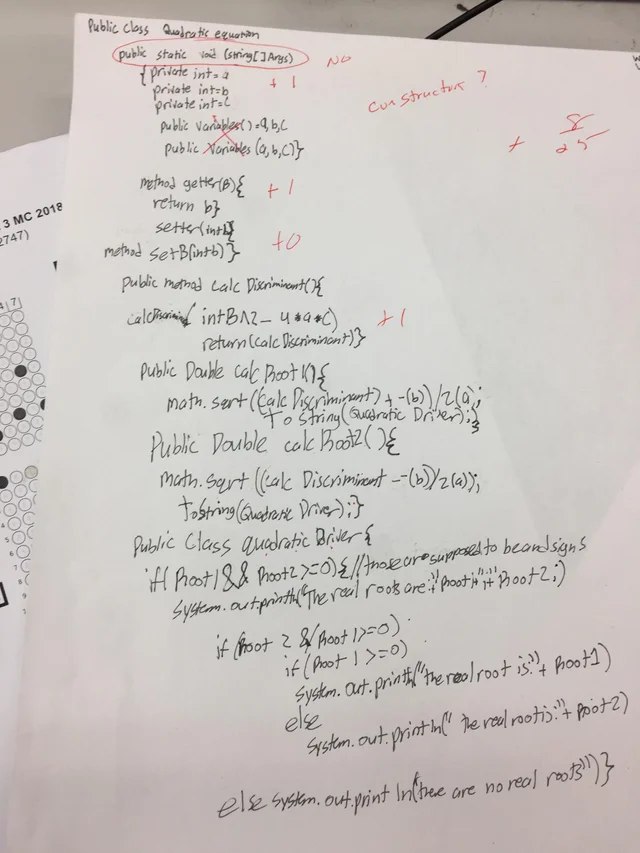 Public Class Quadratic equation
public static void (string[] Args) NO
{ private int = a +1
private int = b
private int = c
constructor ?
public variables() = a,b,c
8
+ 25
public variables (a,b,c)}
method getter(B){ +1
return b}
setter(int b{
method setB(int b)} +0
3 MC 2018
2747)
Public method calc Discriminant(){
calcDiscriminant( int B^2 - 4*a*c) +1
return(calc Discriminant)}
Public Double calc Root1(){
math.sqrt (Calc Discriminant) + -(b))/2(a);
To String(Quadratic Driver);}
Public Double calc Root2(){
math.sqrt ((calc Discriminant - -(b))/2(a));
ToString(Quadratic Driver);}
Public Class quadratic Driver {
if(Root1 && Root2 >=0) { // those are supposed to be and signs
system.out.println("The real roots are:"+Root1";"+Root2;)
if (Root 2 && (Root 1>=0)
if (Root 1 >=0)
system.out.println("the real root is:" + Root1)
else
system.out.println(" The real root is:"+ Root2)
else system.out.print ln("there are no real roots")}